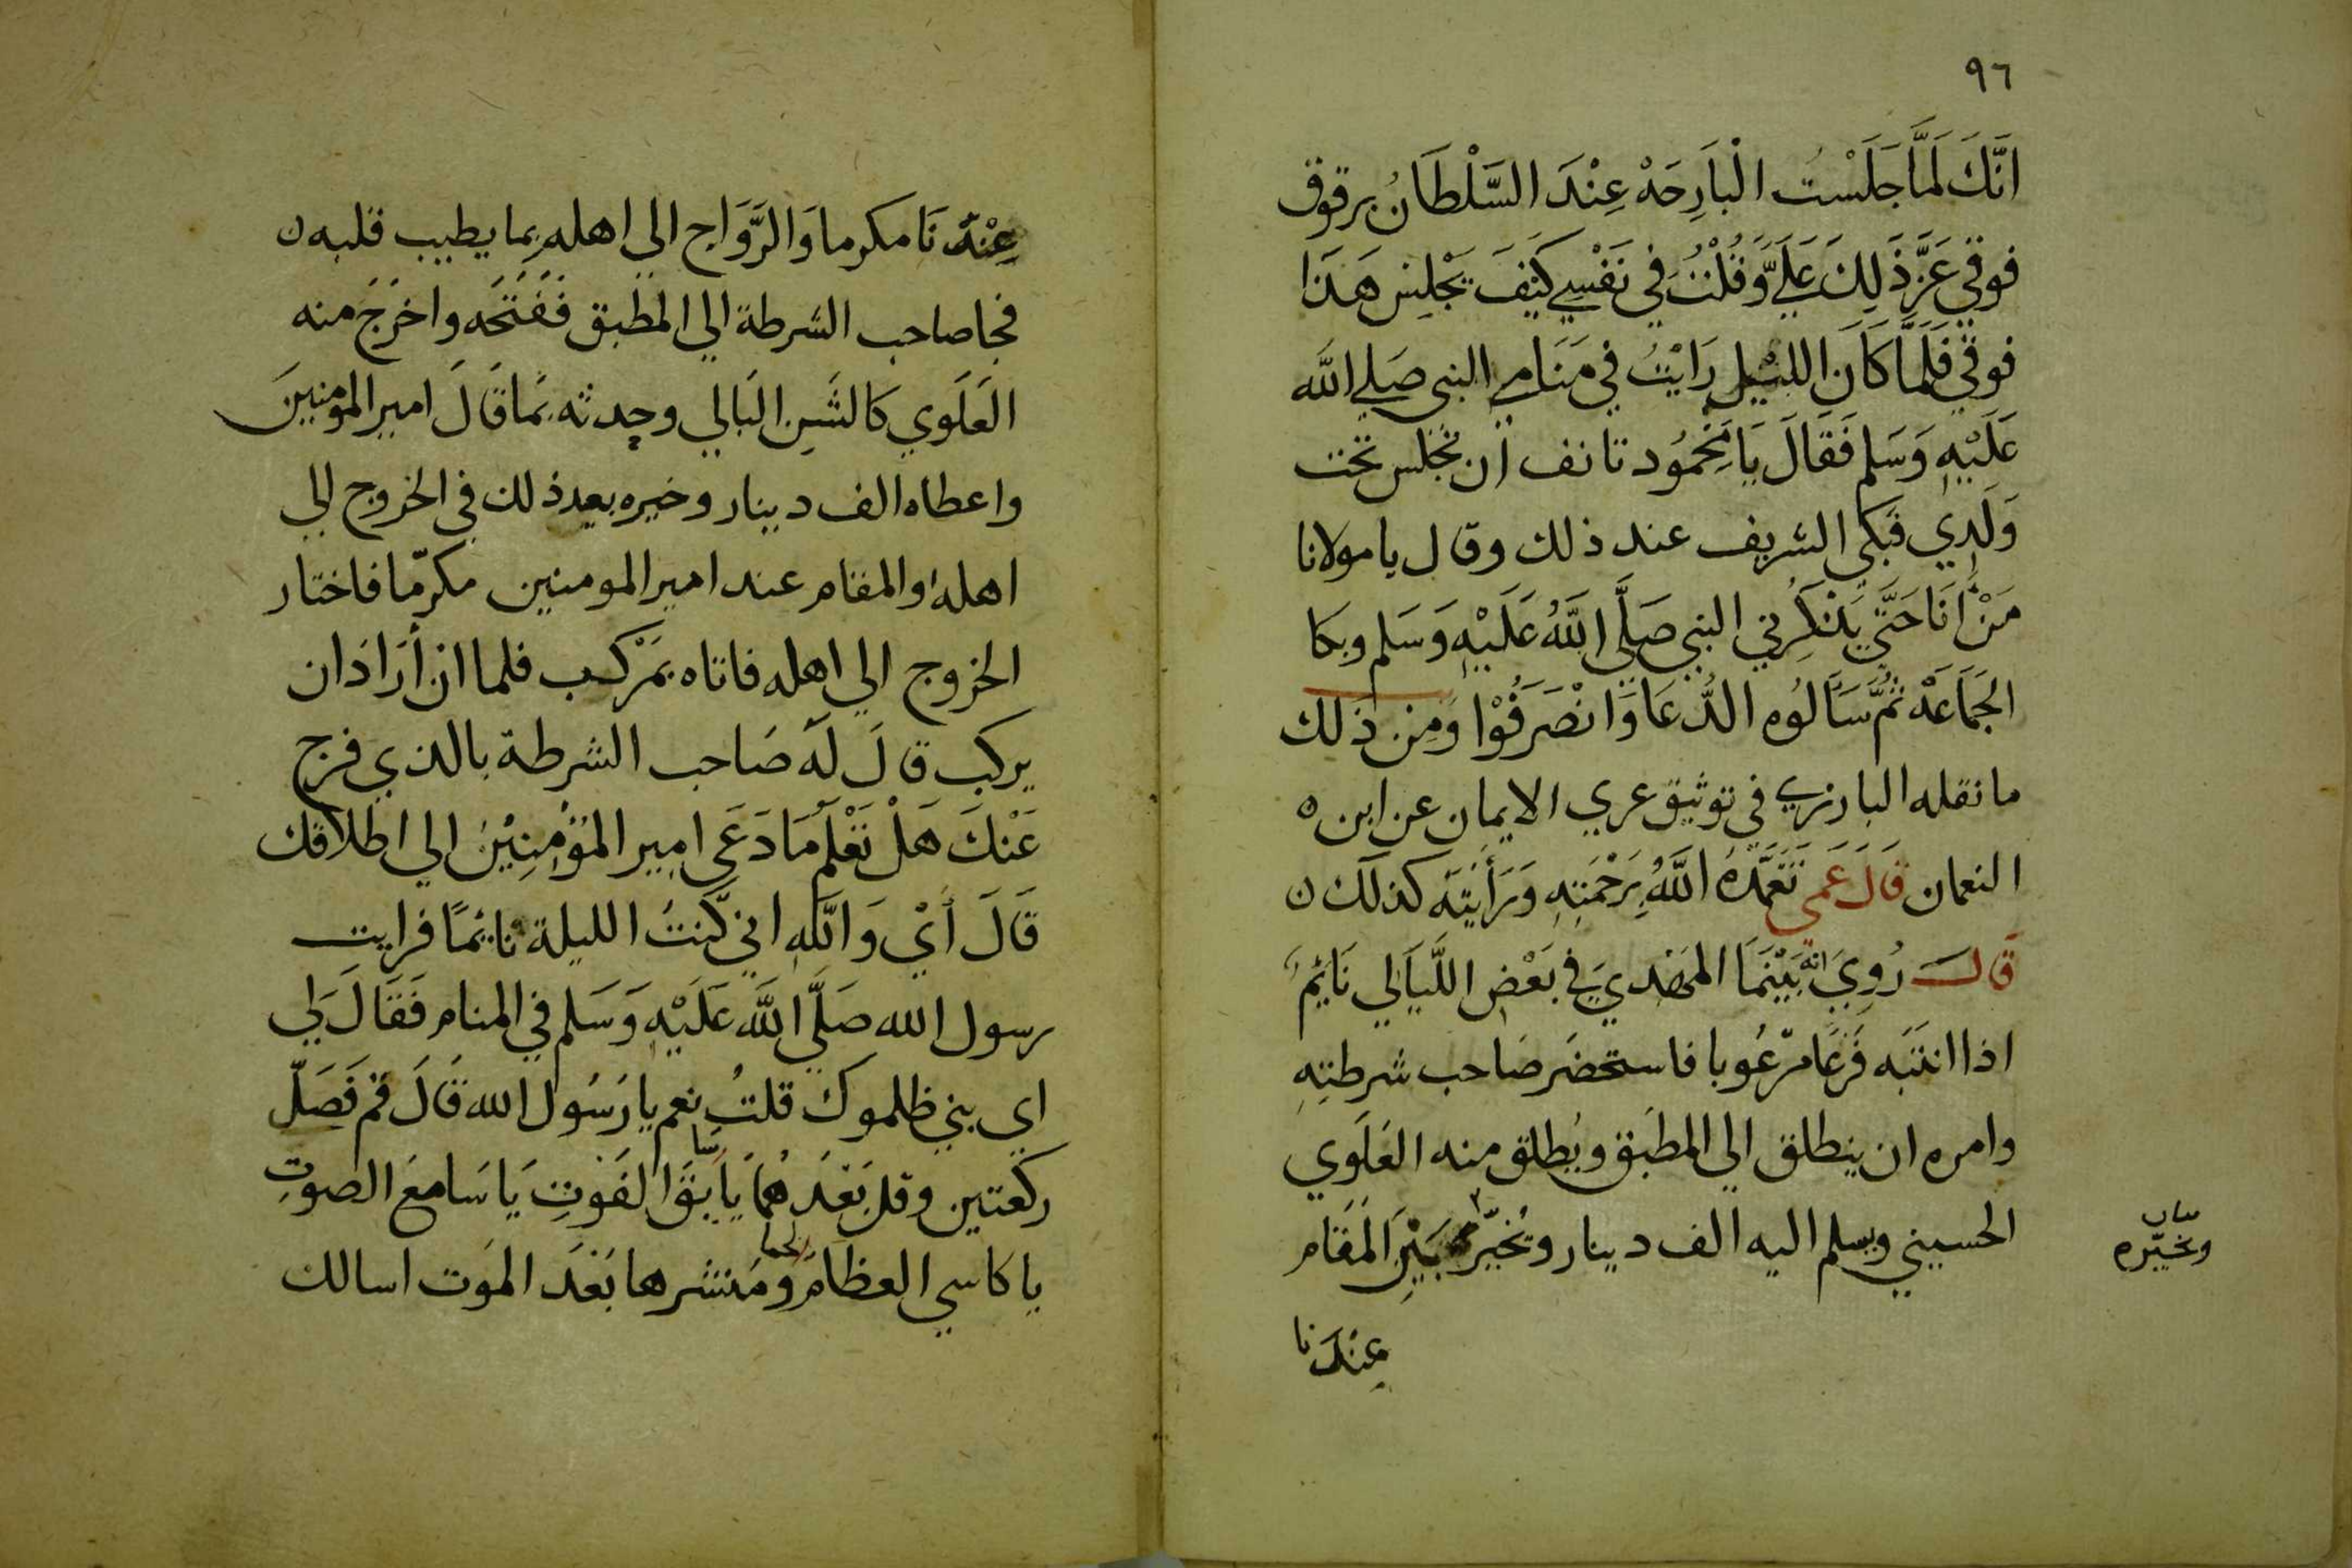 ٩٦
انَّكَ لَمَّا جَلَسْت الْبَارِحَهْ عِنْدَ السَّلْطَانُ برقوق
فوقي عَزَّ ذَلِكَ عَلَيَّ وَقُلْتُ في نَفْسِي كَيْفَ يَجْلِسْ هَذَا
فوقي فَلَمَّا كَانَ الليْل رَايْتُ في مَنَامِي النبي صَلي الله
عَلَيْهِ وَسَلم فَقَالَ يَا مَحْمُود تانف ان تجْلس تحت
وَلَدِي فَبَكي الشريف عند ذلك وقال يا مولانا
مَنْ أَنَا حَتَّي يَذْكِرُني النبي صَلَّي اللَّهُ عَلَيْهِ وَسَلم وبكا
الجَمَاعَهْ ثُمَّ سَأَلوُه الدُّعَا وَانْصَرَفُوْا وَمِن ذلك
ما نقله البارزي في توثيق عري الايمان عن ابن ه
النعمان قَالَ عَمي تَغَمَّدَهُ اللَّهُ بِرَحْمَتِهِ وَرَأَيْتَه كذلك ن
قَالَ رُوِيَ انه بَيْنَمَا المَهْدِيَ في بَعْضِ اللَّيَالي نَايُمٌ
اذا انتَبَه فَزعًا مرْعُوبا فاستحضَر صَاحب شرطتِهِ
وامره ان ينطلق الي المطبَق ويُطلق منه العَلَوي
الحسيني ويسلم اليه الف دينار ويُخيَّر بَيْنَ المَقَام
ويخيّره
عِنْدَنا
عِنْدَنَا مكرما وَالرَّوَاح الي اهله بما يطيب قلبه ن
فجا صاحب الشرطة الي المطبق فَفَتَحَه واخرَجَ منه
العَلَوي كَالشَنِ البَالي وحدثه بمَا قَالَ امير المومنينَ
واعطاه الف دينار وخيره بعد ذلك في الخروج الي
اهله او المقام عند امير المومنين مكرّما فاختار
الخروج الي اهله فاتاه بمَرْكب فلما ان أرَادَ ان
يركب قالَ لَه صَاحب الشرطة بالذي فرج
عَنْكَ هَلْ تَعْلَم مَا دَعَي امِير المُؤْمِنِيْنَ الي اطلاقك
قَالَ أيْ وَاللَّهِ اني كُنتُ الليلة نايُمًا فرايت
رسول الله صَلَّي اللَّه عَلَيْهِ وَسَلم في المنام فَقَالَ لي
اي بني ظلموك قلتُ نعم يا رَسُول الله قَالَ قم فَصَلّ
ركعتين وقل بَعْدَهُمَا يَا سَابقَ الفَوْتِ يَا سَامعَ الصوتِ
يا كاسي العظَام لحما ومُنشرها بَعْدَ المَوت اسالك